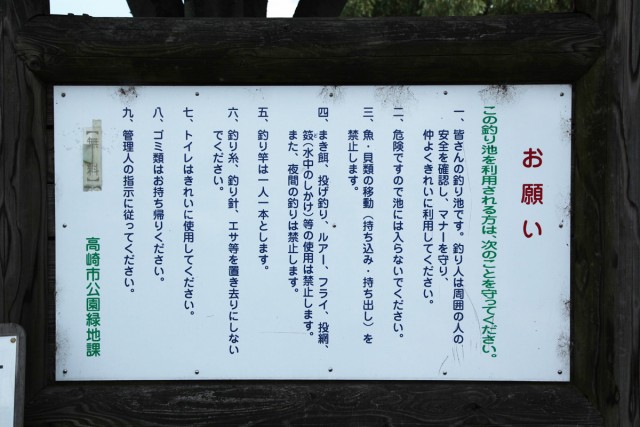 お願い
この釣り池を利用される方は、次のことを守ってください。
一、皆さんの釣り池です。釣り人は周囲の人の
安全を確認し、マナーを守り、
仲よくきれいに利用してください。
二、危険ですので池には入らないでください。
三、魚・貝類の移動（持ち込み・持ち出し）を
禁止します。
四、まき餌、投げ釣り、ルアー、フライ、投網、
筌（水中のしかけ）等の使用は禁止します。
また、夜間の釣りは禁止します。
五、釣り竿は一人一本とします。
六、釣り糸、釣り針、エサ等を置き去りにしない
でください。
七、トイレはきれいに使用してください。
八、ゴミ類はお持ち帰りください。
九、管理人の指示に従ってください。
【無料】
高崎市公園緑地課